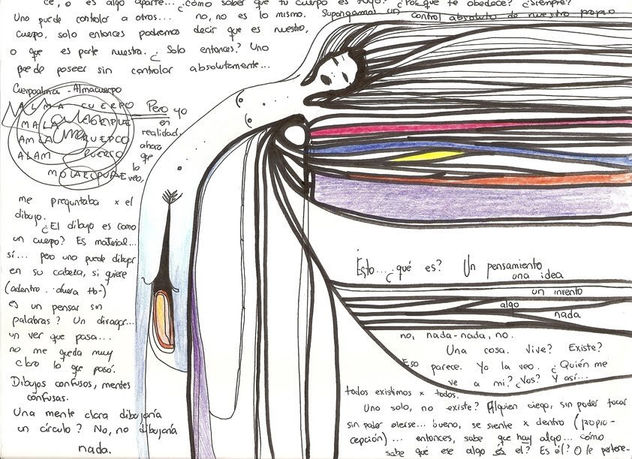 ce, o es algo aparte... ¿cómo saber que tu cuerpo es tuyo? ¿Por que te obedece? ¿siempre?
Uno puede controlar a otros... no, no es lo mismo. Supongamos un control absoluto de nuestro propio
cuerpo, solo entonces podremos decir que es nuestro,
o que es parte nuestra. ¿Solo entonces? Uno
puede poseer sin controlar absolutamente...
Cuerpoalma - Almacuerpo
ALMA CUERPO
MALA
AMLA
ALAM PUERCO
Pero yo
en
realidad,
ahora
que
lo
veo,
me preguntaba x el
dibujo.
¿El dibujo es como
un cuerpo? Es material...
sí... pero uno puede dibujar
en su cabeza, si quiere
(adentro. afuera tb.)
es un pensar sin
palabras? Un
un ver que pasa...
no me queda muy
claro lo que pasó.
Dibujos confusos, mentes
confusas.
Una mente clara dibujaría
un círculo? No, no dibujaría
nada.
Esto... ¿qué es? Un pensamiento
una idea
un invento
algo
nada
no, nada-nada, no.
Una cosa. Vive? Existe?
Eso parece. Yo la veo. ¿Quién me
ve a mi? ¿Vos? Y así...
todos existimos x todos.
Uno solo, no existe? Alguien ciego, sin poder tocar
sin poder olerse... bueno, se siente x dentro (propio-
cepción)... entonces, sabe que hay algo... cómo
sabe que ese algo es el? Es él? O le pertene-